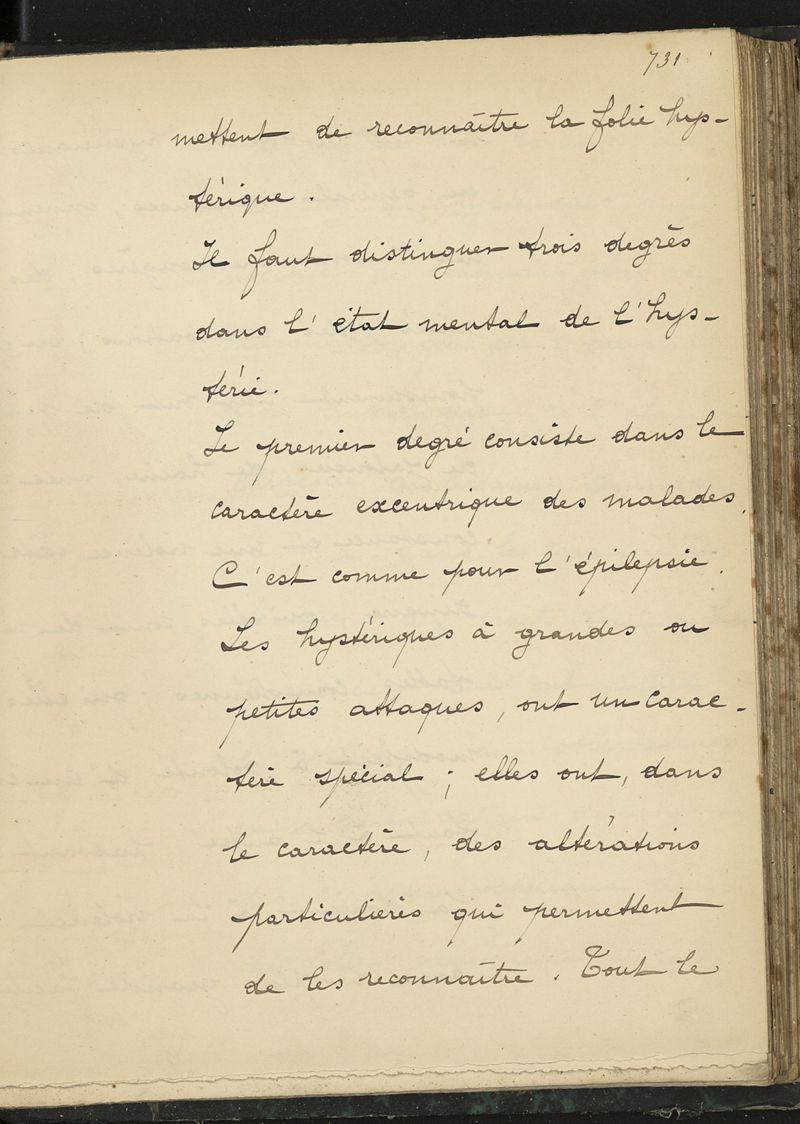 731
mettent de reconnaître la folie hys-
térique.
Il faut distinguer trois degrés
dans l'état mental de l'hys-
térie.
Le premier degré consiste dans le
caractère excentrique des malades.
C'est comme pour l'épilepsie.
Les hystériques à grandes ou
petites attaques, ont un carac-
tère spécial ; elles ont, dans
le caractère, des altérations
particulières qui permettent
de les reconnaître. Tout le